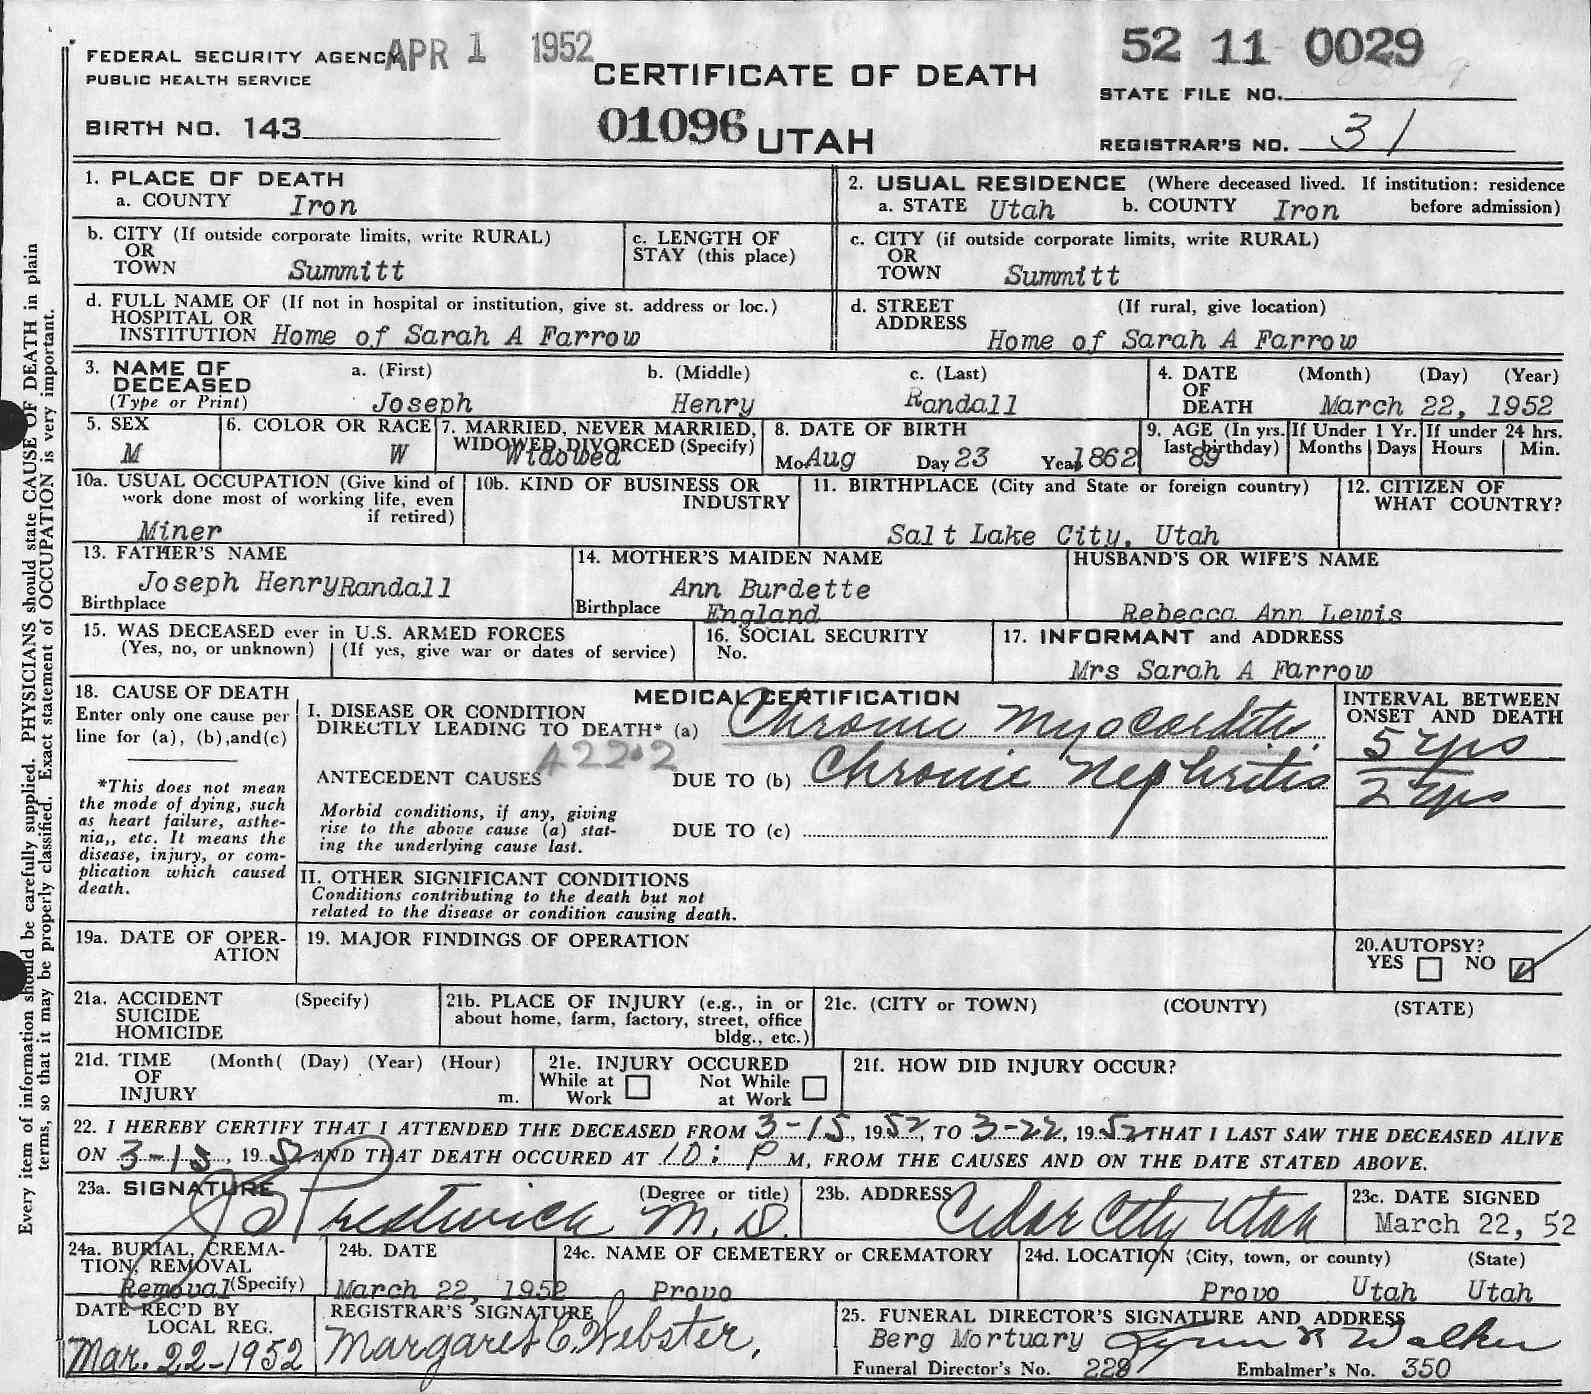 FEDERAL SECURITY AGENCY APR 1 1952
PUBLIC HEALTH SERVICE
CERTIFICATE OF DEATH
52 11 0029
STATE FILE NO.
BIRTH NO. 143
01096 UTAH
REGISTRAR'S NO. 31
Every item of information should be carefully supplied. PHYSICIANS should state CAUSE OF DEATH in plain
terms, so that it may be properly classified. Exact statement of OCCUPATION is very important.
1. PLACE OF DEATH
a. COUNTY Iron
2. USUAL RESIDENCE (Where deceased lived. If institution: residence
a. STATE Utah b. COUNTY Iron before admission)
b. CITY (If outside corporate limits, write RURAL)
OR
TOWN Summitt
c. LENGTH OF
STAY (this place)
c. CITY (if outside corporate limits, write RURAL)
OR
TOWN Summitt
d. FULL NAME OF (If not in hospital or institution, give st. address or loc.)
HOSPITAL OR
INSTITUTION Home of Sarah A Farrow
d. STREET (If rural, give location)
ADDRESS
Home of Sarah A Farrow
3. NAME OF a. (First) b. (Middle) c. (Last)
DECEASED
(Type or Print) Joseph Henry Randall
4. DATE (Month) (Day) (Year)
OF
DEATH March 22, 1952
5. SEX
M
6. COLOR OR RACE
W
7. MARRIED, NEVER MARRIED,
WIDOWED, DIVORCED (Specify)
Widowed
8. DATE OF BIRTH
Mo. Aug Day 23 Year 1862
9. AGE (In yrs. If Under 1 Yr. If under 24 hrs.
last birthday) Months Days Hours Min.
89
10a. USUAL OCCUPATION (Give kind of
work done most of working life, even
if retired)
Miner
10b. KIND OF BUSINESS OR
INDUSTRY
11. BIRTHPLACE (City and State or foreign country)
Salt Lake City, Utah
12. CITIZEN OF
WHAT COUNTRY?
13. FATHER'S NAME
Joseph Henry Randall
Birthplace
14. MOTHER'S MAIDEN NAME
Ann Burdette
Birthplace England
HUSBAND'S OR WIFE'S NAME
Rebecca Ann Lewis
15. WAS DECEASED ever in U.S. ARMED FORCES
(Yes, no, or unknown) (If yes, give war or dates of service)
16. SOCIAL SECURITY
No.
17. INFORMANT and ADDRESS
Mrs Sarah A Farrow
18. CAUSE OF DEATH
Enter only one cause per
line for (a), (b),and(c)
*This does not mean
the mode of dying, such
as heart failure, asthe-
nia,, etc. It means the
disease, injury, or com-
plication which caused
death.
MEDICAL CERTIFICATION
I. DISEASE OR CONDITION
DIRECTLY LEADING TO DEATH* (a) Chronic Myocarditis
422.2
ANTECEDENT CAUSES DUE TO (b) Chronic Nephritis
Morbid conditions, if any, giving
rise to the above cause (a) stat- DUE TO (c)
ing the underlying cause last.
INTERVAL BETWEEN
ONSET AND DEATH
5 yrs
2 yrs
II. OTHER SIGNIFICANT CONDITIONS
Conditions contributing to the death but not
related to the disease or condition causing death.
19a. DATE OF OPER-
ATION
19. MAJOR FINDINGS OF OPERATION
20.AUTOPSY?
YES NO
21a. ACCIDENT (Specify)
SUICIDE
HOMICIDE
21b. PLACE OF INJURY (e.g., in or
about home, farm, factory, street, office
bldg., etc.)
21c. (CITY or TOWN) (COUNTY) (STATE)
21d. TIME (Month( (Day) (Year) (Hour)
OF
INJURY m.
21e. INJURY OCCURED
While at Not While
Work at Work
21f. HOW DID INJURY OCCUR?
22. I HEREBY CERTIFY THAT I ATTENDED THE DECEASED FROM 3-15, 1952, TO 3-22, 1952 THAT I LAST SAW THE DECEASED ALIVE
ON 3-15, 1952 AND THAT DEATH OCCURED AT 10: P M, FROM THE CAUSES AND ON THE DATE STATED ABOVE.
23a. SIGNATURE (Degree or title)
Prestwich M.D.
23b. ADDRESS
Cedar City Utah
23c. DATE SIGNED
March 22, 52
24a. BURIAL, CREMA-
TION, REMOVAL
Removal (Specify)
24b. DATE
March 22, 1952
24c. NAME OF CEMETERY or CREMATORY
Provo
24d. LOCATION (City, town, or county) (State)
Provo Utah Utah
DATE REC'D BY
LOCAL REG.
Mar. 22-1952
REGISTRAR'S SIGNATURE
Margaret C. Webster,
25. FUNERAL DIRECTOR'S SIGNATURE AND ADDRESS
Berg Mortuary Lynn R Walker
Funeral Director's No. 228 Embalmer's No. 350